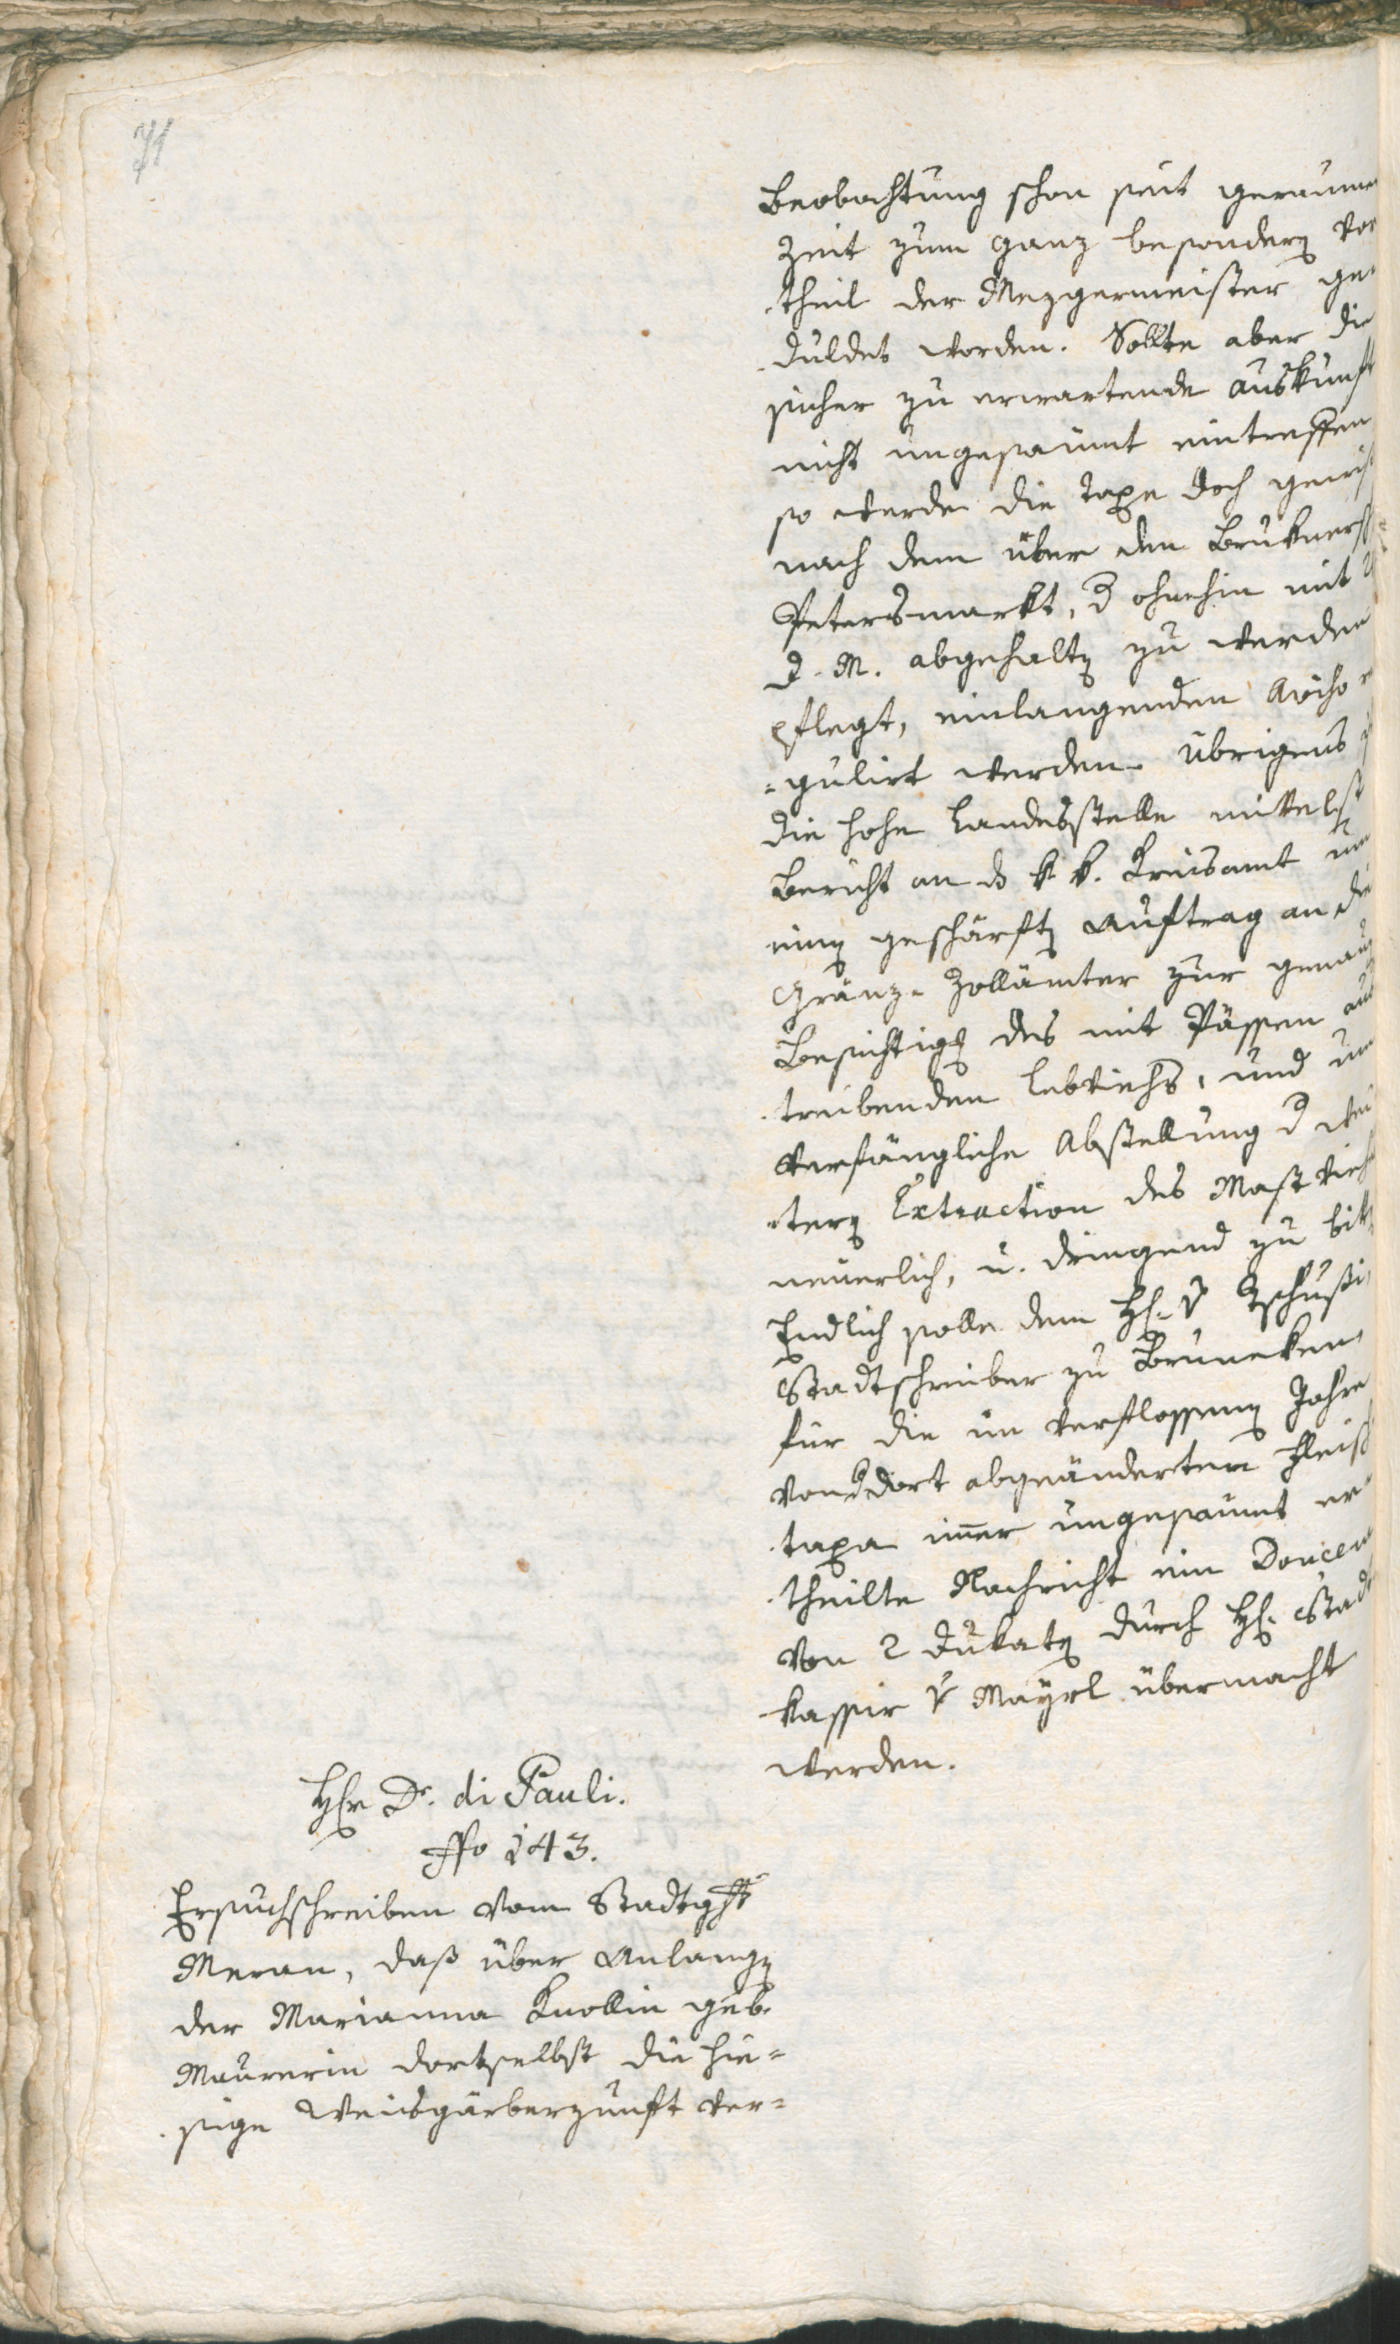 71
Beobachtung schon seit geraumer
Zeit zum ganz besondern Vor
theil der Mezgermeister ge¬
duldet worden. Sollte aber die
sicher zu erwartende Auskunft
nicht ungesaumt eintreffen
so werde die Taxe doch gewiß
nach dem über den Brukner
Petersmarkt, d ohnehin mit
d. M. abgehalten zu werden
pflegt, einlangenden Aviso re
=gulirt werden. Übrigens
die hohe Landesstelle mittelst
Bericht an ds k. k. Kreisamt um
einen geschärften Auftrag an die
Gränz-Zollämter zur genauen
Besichtigg des mit Pässen aus
treibenden Lebviehs, und un
verfängliche Abstellung d wei
tern Extraction des Mastviehs
neuerlich, u. dringend zu bitten
Endlich solle dem Hr. v Tschusi
Stadtschreiber zu Bruneken
für die im verflossenen Jahre
von dort abgeänderten Fleisch
taxa immer ungesaumt er
theilte Nachricht ein Douceur
von 2 Dukaten durch Hr. Stadt
kassir v Mayrl übermacht
werden.
Herr Dr. di Pauli.
No 143.
Ersuchschreiben vom Stadtght
Meran, daß über Anlangen
der Marianna Knollin geb.
Maurerin dortselbst die hie=
sige Weisgärberzunft ver=